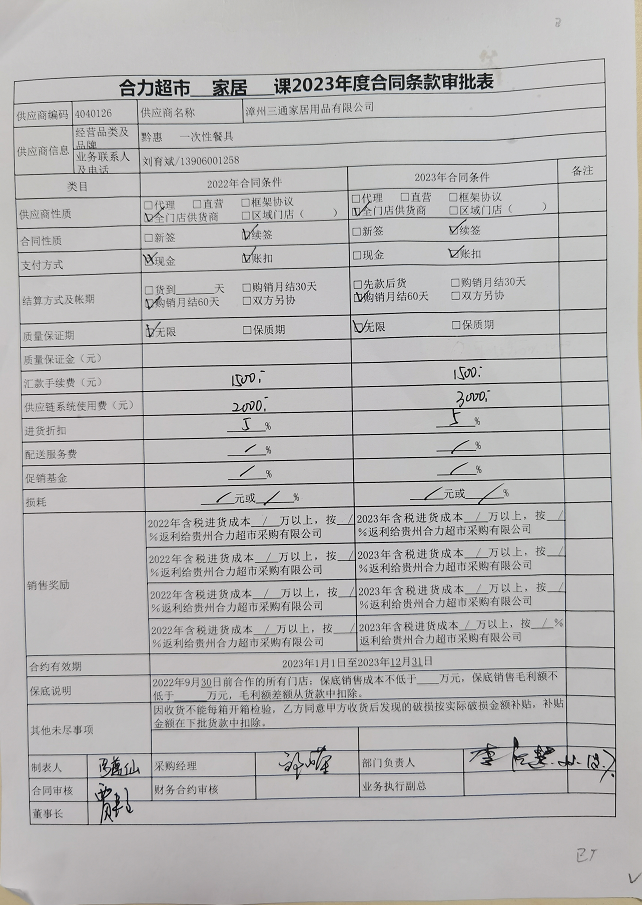 合力超市 家居 课2023年度合同条款审批表
供应商编码 4040126 供应商名称 漳州三通家居用品有限公司
供应商信息 经营品类及品牌 黔惠 一次性餐具
业务联系人及电话 刘育斌/13906001258
类目 2022年合同条件 2023年合同条件 备注
供应商性质 □代理 □直营 □框架协议 □代理 □直营 □框架协议
☑全门店供货商 □区域门店（ ） ☑全门店供货商 □区域门店（ ）
合同性质 □新签 ☑续签 □新签 ☑续签
支付方式 ☑现金 ☑账扣 □现金 ☑账扣
结算方式及帐期 □货到____天 □购销月结30天 □先款后货 □购销月结30天
☑购销月结60天 □双方另协 ☑购销月结60天 □双方另协
质量保证期 ☑无限 □保质期 ☑无限 □保质期
质量保证金（元）
汇款手续费（元） 1500;- 1500;-
供应链系统使用费（元） 2000;- 3000;-
进货折扣 5 % 5 %
配送服务费 / % / %
促销基金 / % / %
损耗 / 元或 / % / 元或 / %
销售奖励
2022年含税进货成本 / 万以上，按 / 2023年含税进货成本 / 万以上，按 /
%返利给贵州合力超市采购有限公司 %返利给贵州合力超市采购有限公司
2022年含税进货成本 / 万以上，按 / 2023年含税进货成本 / 万以上，按 /
%返利给贵州合力超市采购有限公司 %返利给贵州合力超市采购有限公司
2022年含税进货成本 / 万以上，按 / 2023年含税进货成本 / 万以上，按 /
%返利给贵州合力超市采购有限公司 %返利给贵州合力超市采购有限公司
2022年含税进货成本 / 万以上，按 / 2023年含税进货成本 / 万以上，按 / %
%返利给贵州合力超市采购有限公司 返利给贵州合力超市采购有限公司
合约有效期 2023年1月1日至2023年12月31日
保底说明 2022年9月30日前合作的所有门店；保底销售成本不低于____万元，保底销售毛利额不
低于____万元，毛利额差额从货款中扣除。
其他未尽事项 因收货不能每箱开箱检验，乙方同意甲方收货后发现的破损按实际破损金额补贴，补贴
金额在下批货款中扣除。
制表人 采购经理 部门负责人 李
合同审核 财务合约审核 业务执行副总
董事长